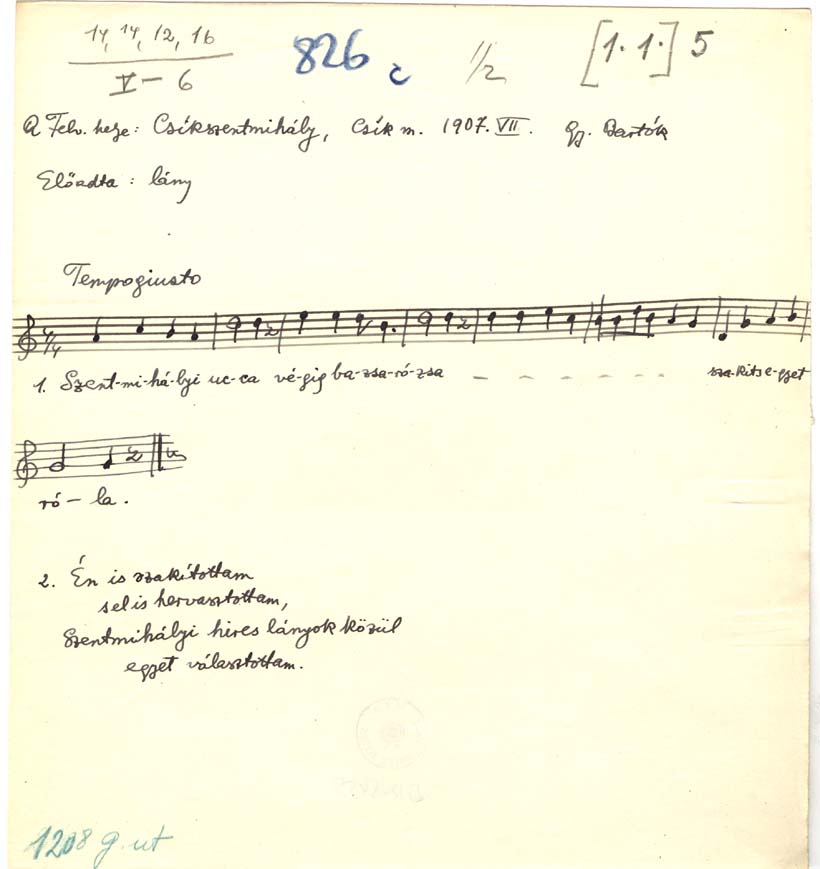 14, 14, 12, 16
V – 6
826 c
1/2
[1. 1.] 5
A Felv. helye: Csíkszentmihály, Csík m. 1907. VII. Gy. Bartók
Előadta: lány
Tempo giusto
4/4
1. Szent-mi-há-lyi uc-ca vé-gig ba-zsa-ró-zsa – – – – – – – sza-kits e-gyet
ró – la.
2. Én is szakítottam
sel is hervasztottam,
Szentmihályi hires lányok közül
egyet választottam.
1208 g. ut